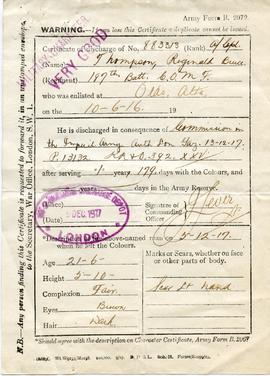 Army Form B. 2079.
WARNING.—If you lose this Certificate a duplicate cannot be issued.
VERY GOOD
Certificate of discharge of No. 883213 (Rank)
(Name) Thompson, Reginald Bruce
(Regiment) 187th Batt. C.O.M.F.
who was enlisted at Olds, Alta,
on 10-6-16. 19
He is discharged in consequence of Commission in
the Imperial Army Auth Lon Gaz 13-12-17.
P. 13132 KR & O. 392. XXV
after serving 1 years 179 days with the Colours, and
years days in the Army Reserve
(Place)
(Date)
DEC. 1917
DISCHARGE DEPOT
LONDON
Signature of
Commanding
Officer
*Description of the above-named man on 5-12-17.
when he left the Colours.
Age 21-6
Height 5-10
Complexion Fair
Eyes Brown
Hair Dark
Marks or Scars, whether on face
or other parts of body.
Scar Lt hand
*Should agree with the description on Character Certificate, Army Form B. 2067
N.B.—Any person finding this Certificate is requested to forward it, in an unstamped envelope,
to the Secretary, War Office, London, S.W. 1.